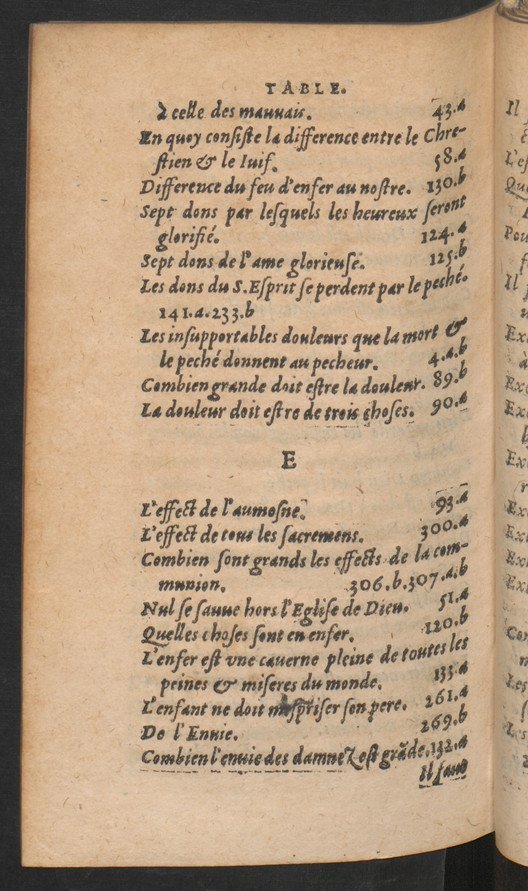 TABLE.
à celle des mauuais. 43.a
En quoy consiste la difference entre le Chre-
stien & le Iuif. 58.a
Difference du feu d'enfer au nostre. 130.b
Sept dons par lesquels les heureux seront
glorifié. 124.a
Sept dons de l'ame glorieuse. 125.b
Les dons du S. Esprit se perdent par le peché.
141.a.233.b
Les insupportables douleurs que la mort &
le peché donnent au pecheur. 4.a.b
Combien grande doit estre la douleur. 89.b
La douleur doit estre de trois choses. 90.a
E
L'effect de l'aumosne. 93.a
L'effect de tous les sacremens. 300.a
Combien sont grands les effects de la com-
munion. 306.b.307.a.b
Nul se sauue hors l'Eglise de Dieu. 51.a
Quelles choses sont en enfer. 120.b
L'enfer est vne cauerne pleine de toutes les
peines & miseres du monde. 133.a
L'enfant ne doit mespriser son pere. 261.a
De l'Enuie. 269.b
Combien l'enuie des damnez est grãde. 132.a
Il faut